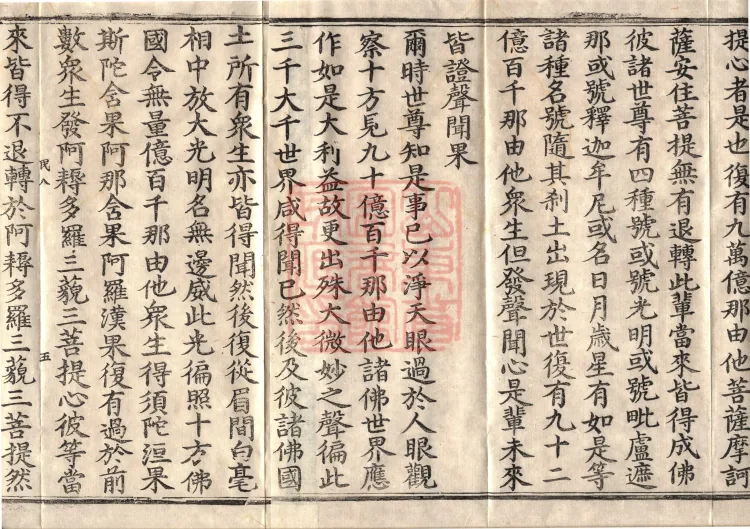 提心者是也復有九萬億那由他菩薩摩訶
薩安住菩提無有退轉此輩當來皆得成佛
彼諸世尊有四種號或號光明或號毗盧遮
那或號釋迦牟尼或名日月歲星有如是等
諸種名號隨其剎土出現於世復有九十二
億百千那由他眾生但發聲聞心是輩未來
皆證聲聞果
爾時世尊知是事已以淨天眼過於人眼觀
察十方見九十億百千那由他諸佛世界應
作如是大利益故更出殊大微妙之聲徧此
三千大千世界咸得聞已然後及彼諸佛國
土所有眾生亦皆得聞然後復從眉間白毫
相中放大光明名無邊威此光徧照十方佛
國令無量億百千那由他眾生得須陀洹果
斯陀含果阿那含果阿羅漢果復有過於前
數眾生發阿耨多羅三藐三菩提心彼等當
民八 五
來皆得不退轉於阿耨多羅三藐三菩提然